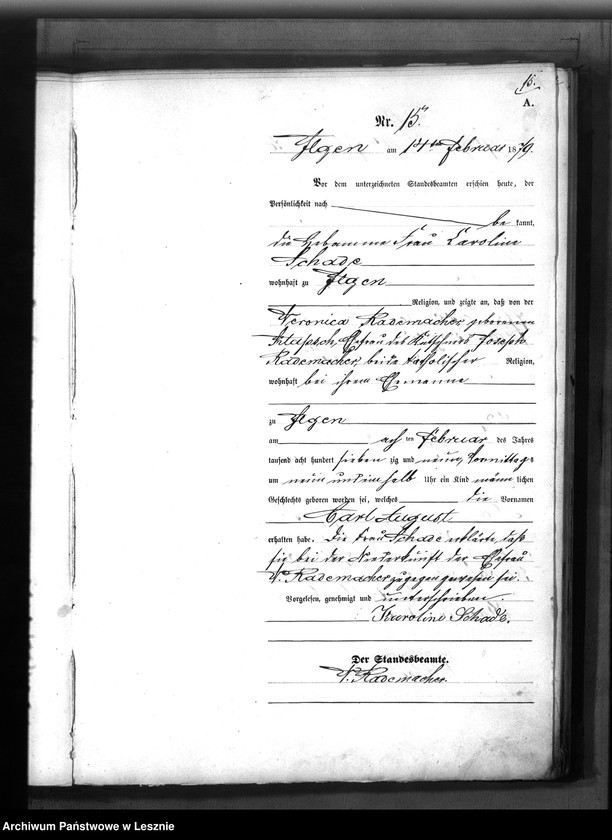 15.
A.
Nr. 15.
Ilgen am 14ten Februar 1879.
Vor dem unterzeichneten Standesbeamten erschien heute, der
Persönlichkeit nach
be kannt,
die Hebamme Frau Caroline
Schade
wohnhaft zu Ilgen
Religion, und zeigte an, daß von der
Veronica Rademacher, geborenen
Ehefrau des Joseph
Rademacher, beide katholischer Religion,
wohnhaft bei ihrem Ehemanne
zu Ilgen
am ten Februar des Jahres
tausend acht hundert sieben zig und neun, Vormittags
um neun und ein halb Uhr ein Kind männ lichen
Geschlechts geboren worden sei, welches die Vornamen
Carl August
erhalten habe. Die Frau Schade erklärte, daß
sie bei der Niederkunft der Ehefrau
V. Rademacher zugegen gewesen sei.
Vorgelesen, genehmigt und unterschrieben.
Karoline Schade.
Der Standesbeamte.
Rademacher.
Archiwum Państwowe w Lesznie